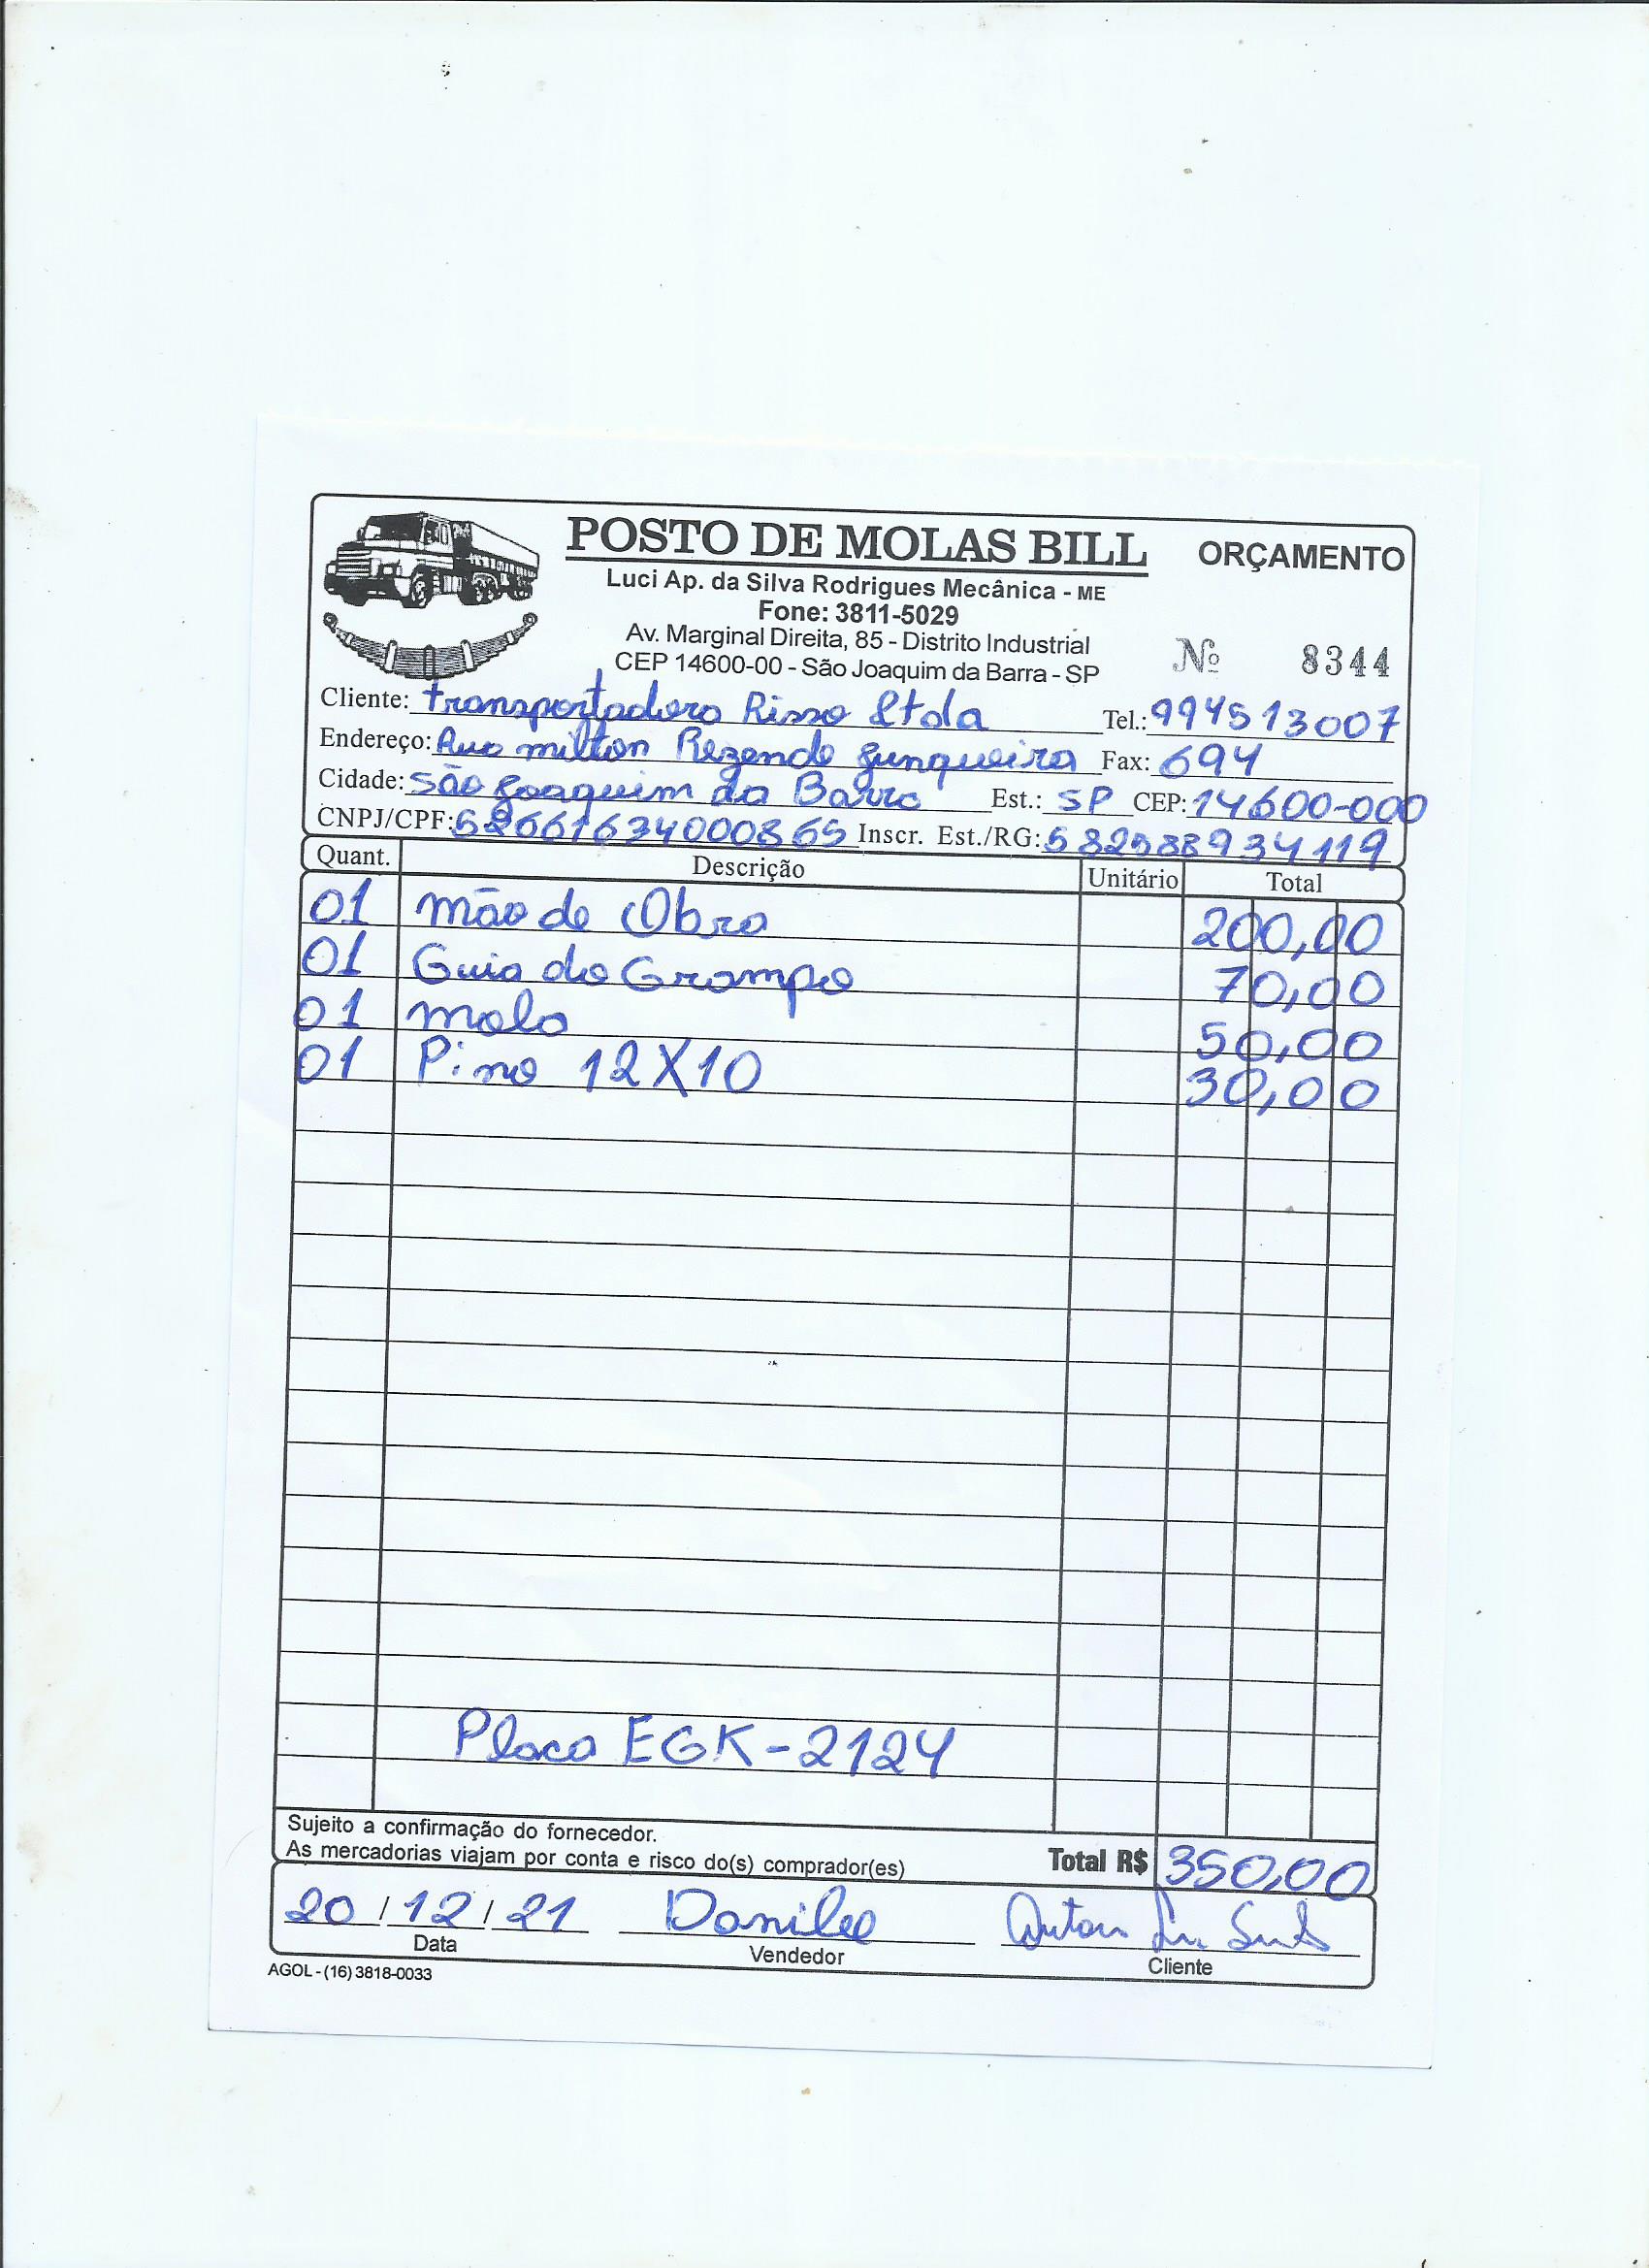 POSTO DE MOLAS BILL ORÇAMENTO
Luci Ap. da Silva Rodrigues Mecânica - ME
Fone: 3811-5029
Av. Marginal Direita, 85 - Distrito Industrial
CEP 14600-00 - São Joaquim da Barra - SP
Nº 8344
Cliente: Transportadora Risso Ltda Tel.: 994513007
Endereço: Rua milton Rezende Junqueira Fax: 694
Cidade: São Joaquim da Barra Est.: SP CEP: 14600-000
CNPJ/CPF: 52661634000865 Inscr. Est./RG: 582588934119
Quant. Descrição Unitário Total
01 mão de Obra 200,00
01 Guia do Grampo 70,00
01 mola 50,00
01 Pino 12X10 30,00
Placa EGK-2124
Sujeito a confirmação do fornecedor.
As mercadorias viajam por conta e risco do(s) comprador(es)
Total R$ 350,00
20/12/21 Danilo
Data Vendedor Cliente
AGOL - (16) 3818-0033